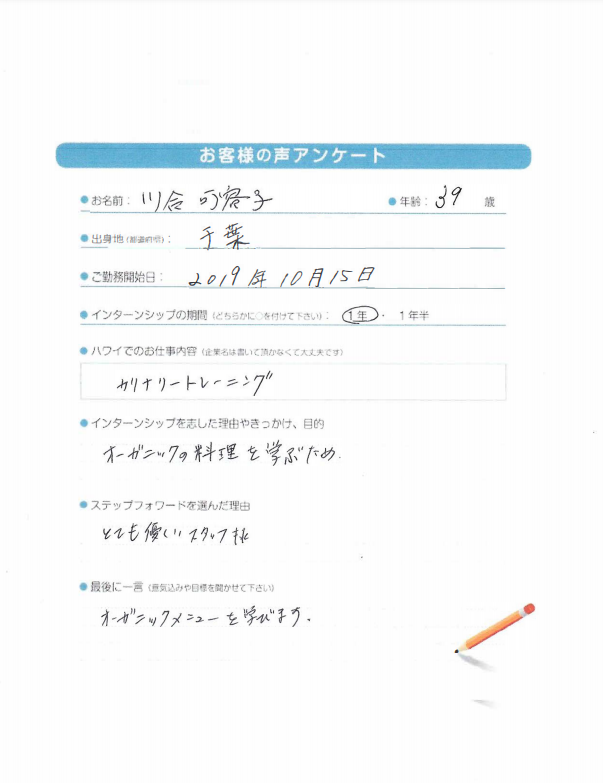 お客様の声アンケート
お名前： 川合 子 年齢： 39 歳
出身地（都道府県）： 千葉
ご勤務開始日： 2019年10月15日
インターンシップの期間（どちらかに○を付けて下さい）： 1年 ・ 1年半
ハワイでのお仕事内容（企業名は書いて頂かなくて大丈夫です）
カリナリートレーニング
インターンシップを志した理由やきっかけ、目的
オーガニックの料理を学ぶため.
ステップフォワードを選んだ理由
とても優しいスタッフ様
最後に一言（意気込みや目標を聞かせて下さい）
オーガニックメニューを学びます。